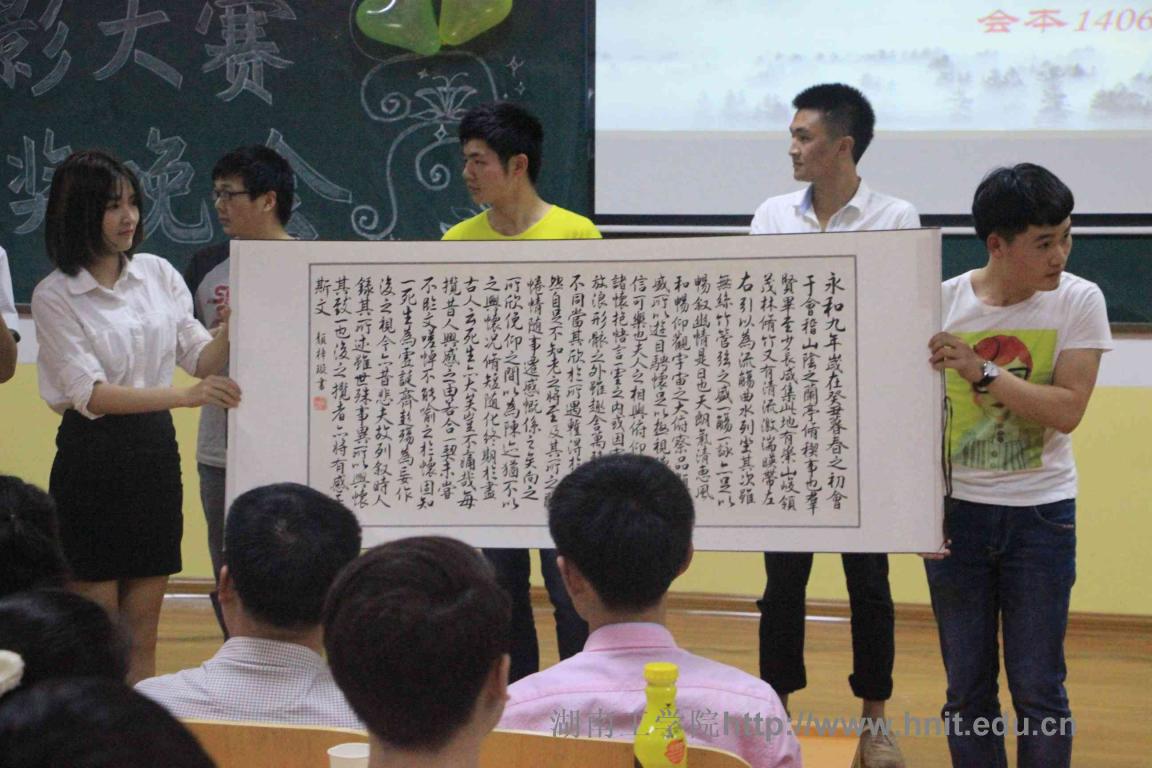 影大赛
奖晚会
会本1406
永和九年歲在癸丑暮春之初會
于會稽山陰之蘭亭脩稧事也羣
賢畢至少長咸集此地有崇山峻領
茂林脩竹又有清流激湍暎帶左
右引以為流觴曲水列坐其次雖
無絲竹管弦之盛一觴一詠亦足以
暢叙幽情是日也天朗氣清惠風
和暢仰觀宇宙之大俯察品類
盛所以遊目騁懷足以極視
信可樂也夫人之相與俯仰
諸懷抱悟言一室之内或因
放浪形骸之外雖趣舍萬
不同當其欣於所遇暫得於
然自足不知老之將至及其所之
惓情隨事遷感慨係之矣向之
所欣俛仰之間以為陳迹猶不以
之興懷況脩短隨化終期於盡
古人云死生亦大矣豈不痛哉每
攬昔人興感之由若合一契未嘗
不臨文嗟悼不能喻之於懷固知
一死生為虛誕齊彭殤為妄作
後之視今亦昔悲夫故列叙時人
錄其所述雖世殊事異所以興懷
其致一也後之攬者亦將有感
斯文
書
湖南工学院http://www.hnit.edu.cn